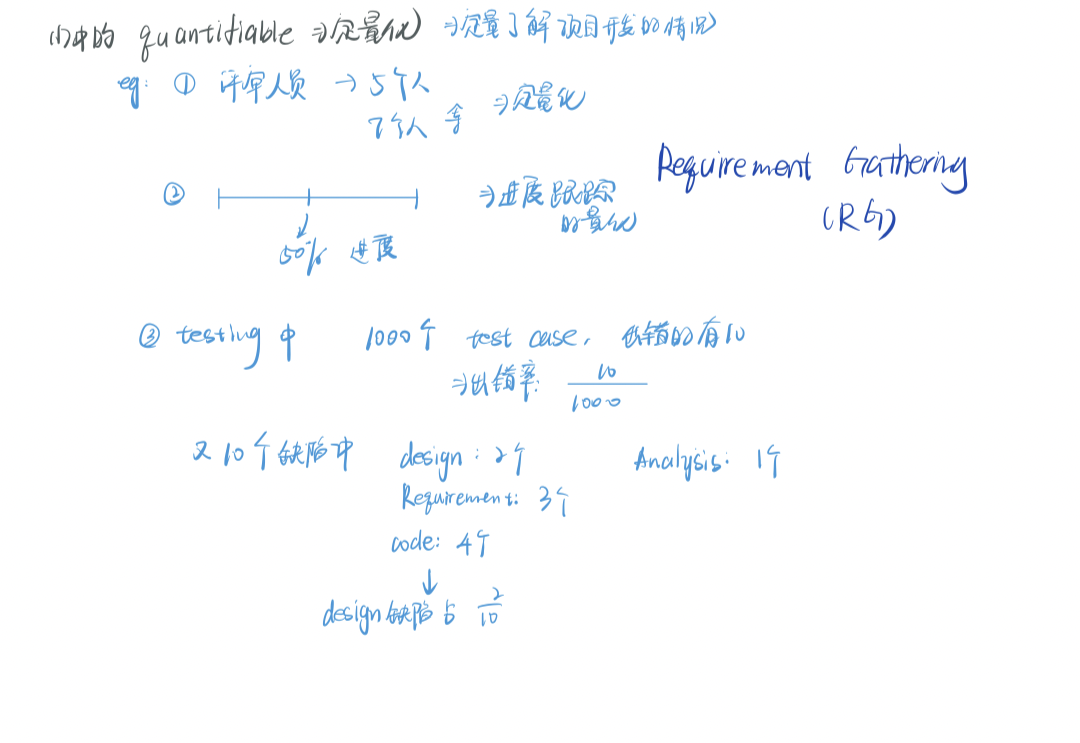 (1)中的 quantifiable ⇒定量化 ⇒定量了解项目开发的情况
eg: ① 评审人员 → 5个人
7个人 等 ⇒定量化
Requirement Gathering
(RG)
② ⇒进度跟踪
的量化
50% 进度
③ testing 中 1000个 test case, 出错的有10
⇒出错率: 10/1000
又 10个缺陷中 design: 2个 Analysis: 1个
Requirement: 3个
code: 4个
↓
design缺陷占 2/10